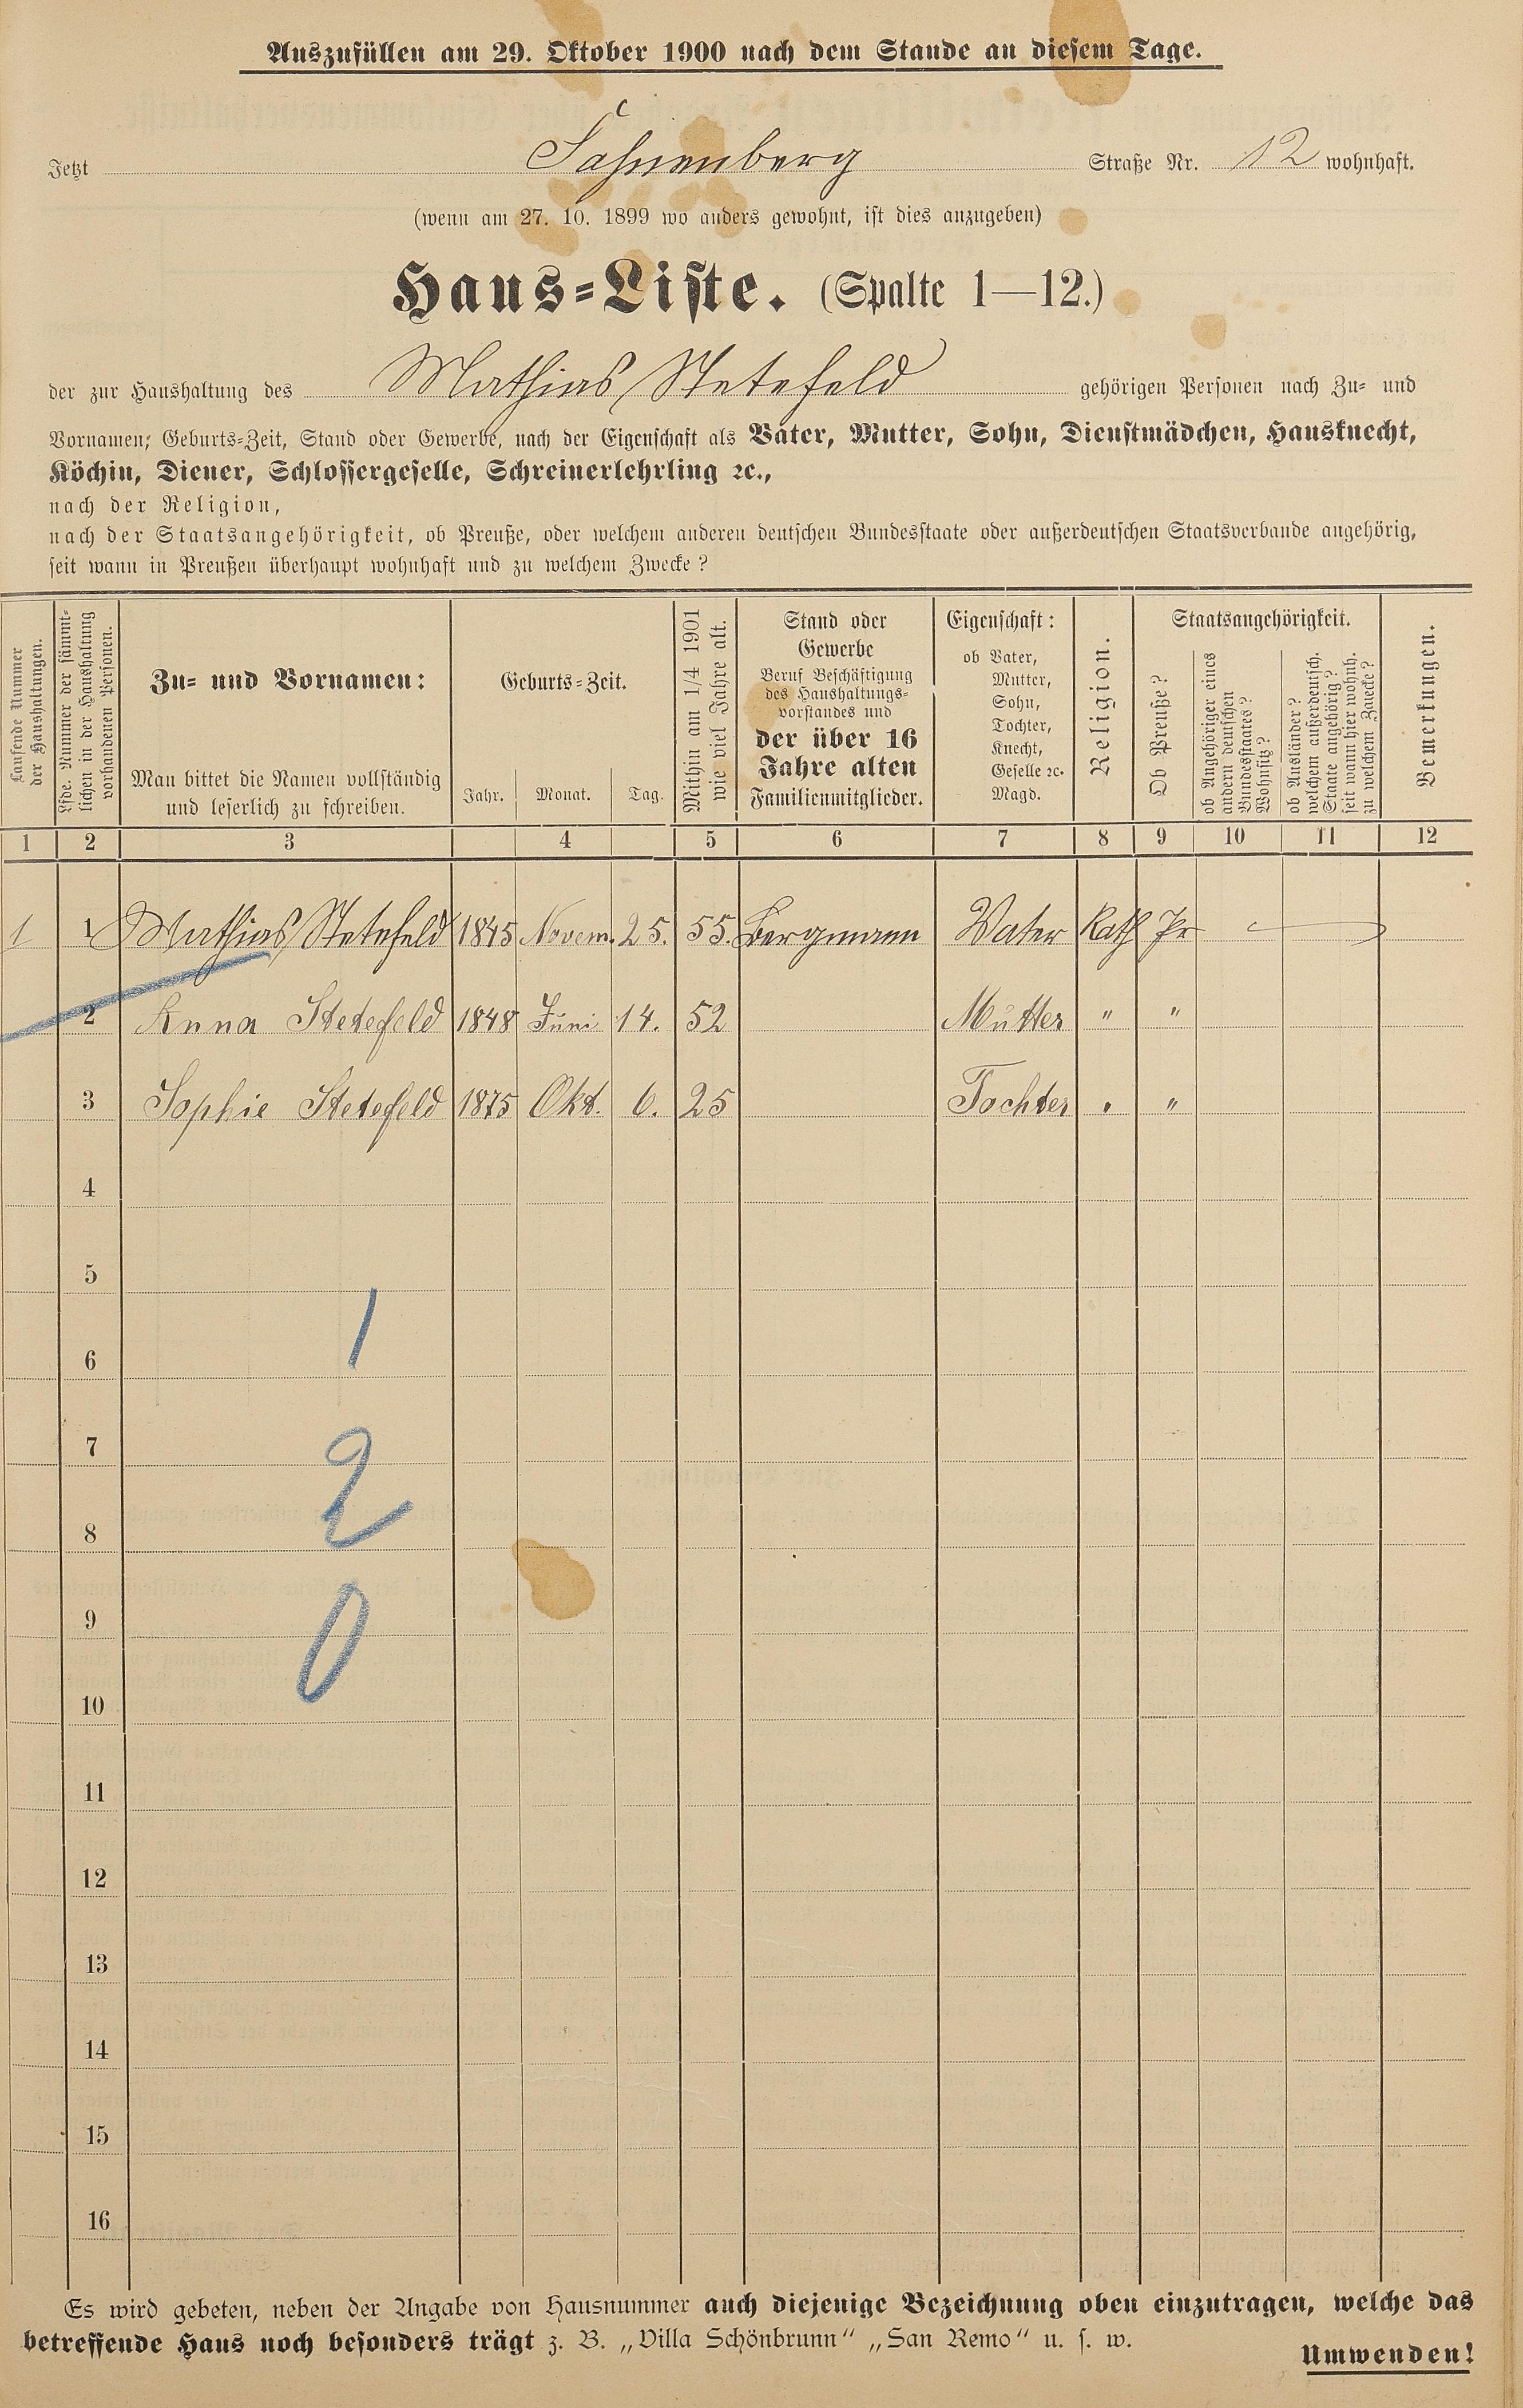 Auszufüllen am 29. Oktober 1900 nach dem Stande an diesem Tage.
Jetzt Fahnenberg Straße Nr. 12 wohnhaft.
(wenn am 27. 10. 1899 wo anders gewohnt, ist dies anzugeben)
Haus-Liste. (Spalte 1—12.)
der zur Haushaltung des Mathias Stetefeld gehörigen Personen nach Zu- und
Vornamen; Geburts-Zeit, Stand oder Gewerbe, nach der Eigenschaft als Vater, Mutter, Sohn, Dienstmädchen, Hausknecht,
Köchin, Diener, Schlossergeselle, Schreinerlehrling ꝛc.,
nach der Religion,
nach der Staatsangehörigkeit, ob Preuße, oder welchem anderen deutschen Bundesstaate oder außerdeutschen Staatsverbande angehörig,
seit wann in Preußen überhaupt wohnhaft und zu welchem Zwecke?
Laufende Nummer
der Haushaltungen.
Lfde. Nummer der sämmt-
lichen in der Haushaltung
vorhandenen Personen.
Zu- und Vornamen:
Man bittet die Namen vollständig
und leserlich zu schreiben.
Geburts-Zeit.
Jahr. Monat. Tag.
Mithin am 1/4 1901
wie viel Jahre alt.
Stand oder
Gewerbe
Beruf Beschäftigung
des Haushaltungs-
vorstandes und
der über 16
Jahre alten
Familienmitglieder.
Eigenschaft:
ob Vater,
Mutter,
Sohn,
Tochter,
Knecht,
Geselle ꝛc.
Magd.
Religion.
Staatsangehörigkeit.
Ob Preuße?
ob Angehöriger eines
andern deutschen
Bundesstaates?
Wohnsitz?
ob Ausländer?
welchem außerdeutsch.
Staate angehörig?
seit wann hier wohnh.
zu welchem Zwecke?
Bemerkungen.
1 2 3 4 5 6 7 8 9 10 11 12
1 1 Mathias Stetefeld 1845 Novem. 25. 55. Bergmann Vater Kath Pr
2 Anna Stetefeld 1848 Juni 14. 52 Mutter " "
3 Sophie Stetefeld 1875 Okt. 6. 25 Tochter " "
4
5
6
1
7
2
8
9
0
10
11
12
13
14
15
16
Es wird gebeten, neben der Angabe von Hausnummer auch diejenige Bezeichnung oben einzutragen, welche das
betreffende Haus noch besonders trägt z. B. „Villa Schönbrunn“ „San Remo“ u. s. w.
Umwenden!